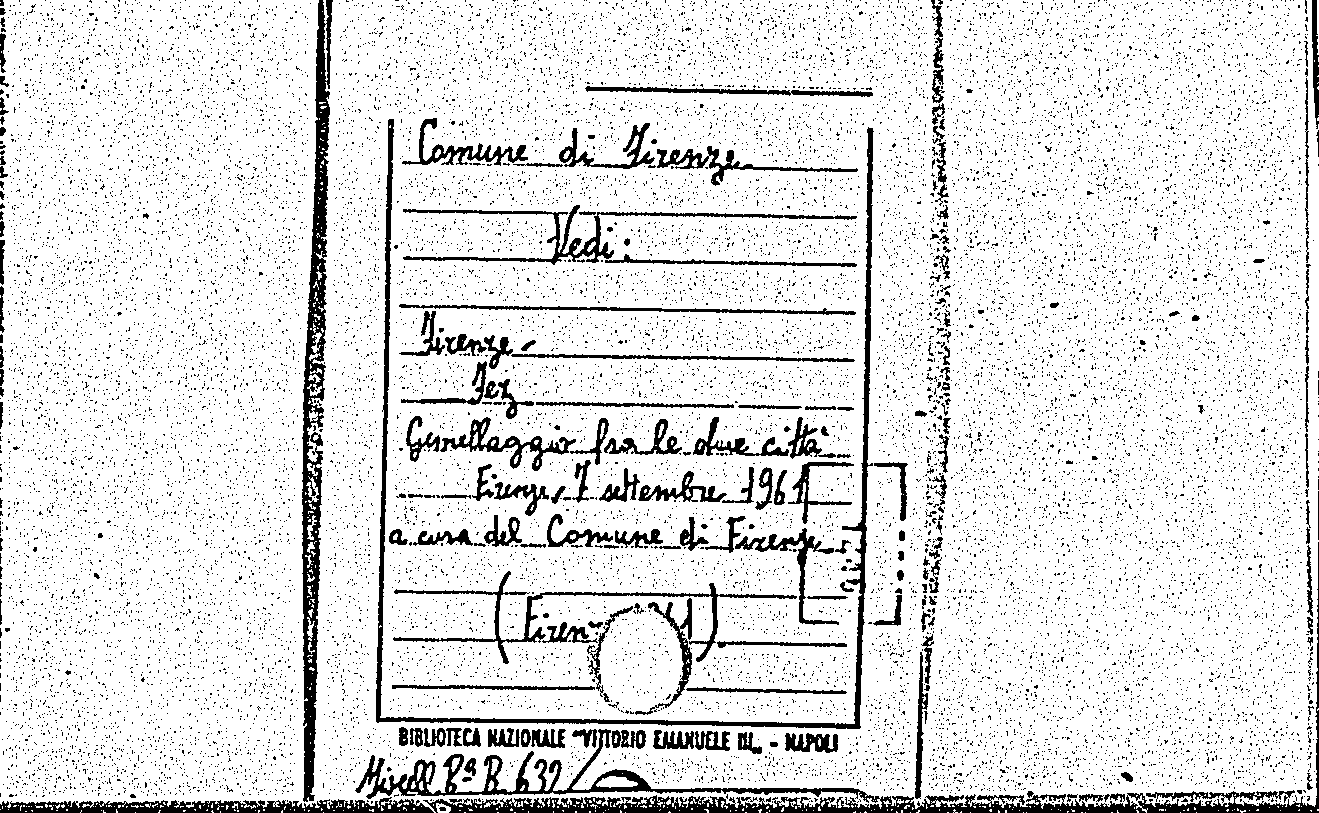 Comune di Firenze
Vedi:
Firenze -
Fez
Gemellaggio fra le due città
Firenze, 7 settembre 1961
a cura del Comune di Firenze
(Firen 1)
BIBLIOTECA NAZIONALE "VITTORIO EMANUELE III" - NAPOLI
Miscell Bª B. 632/